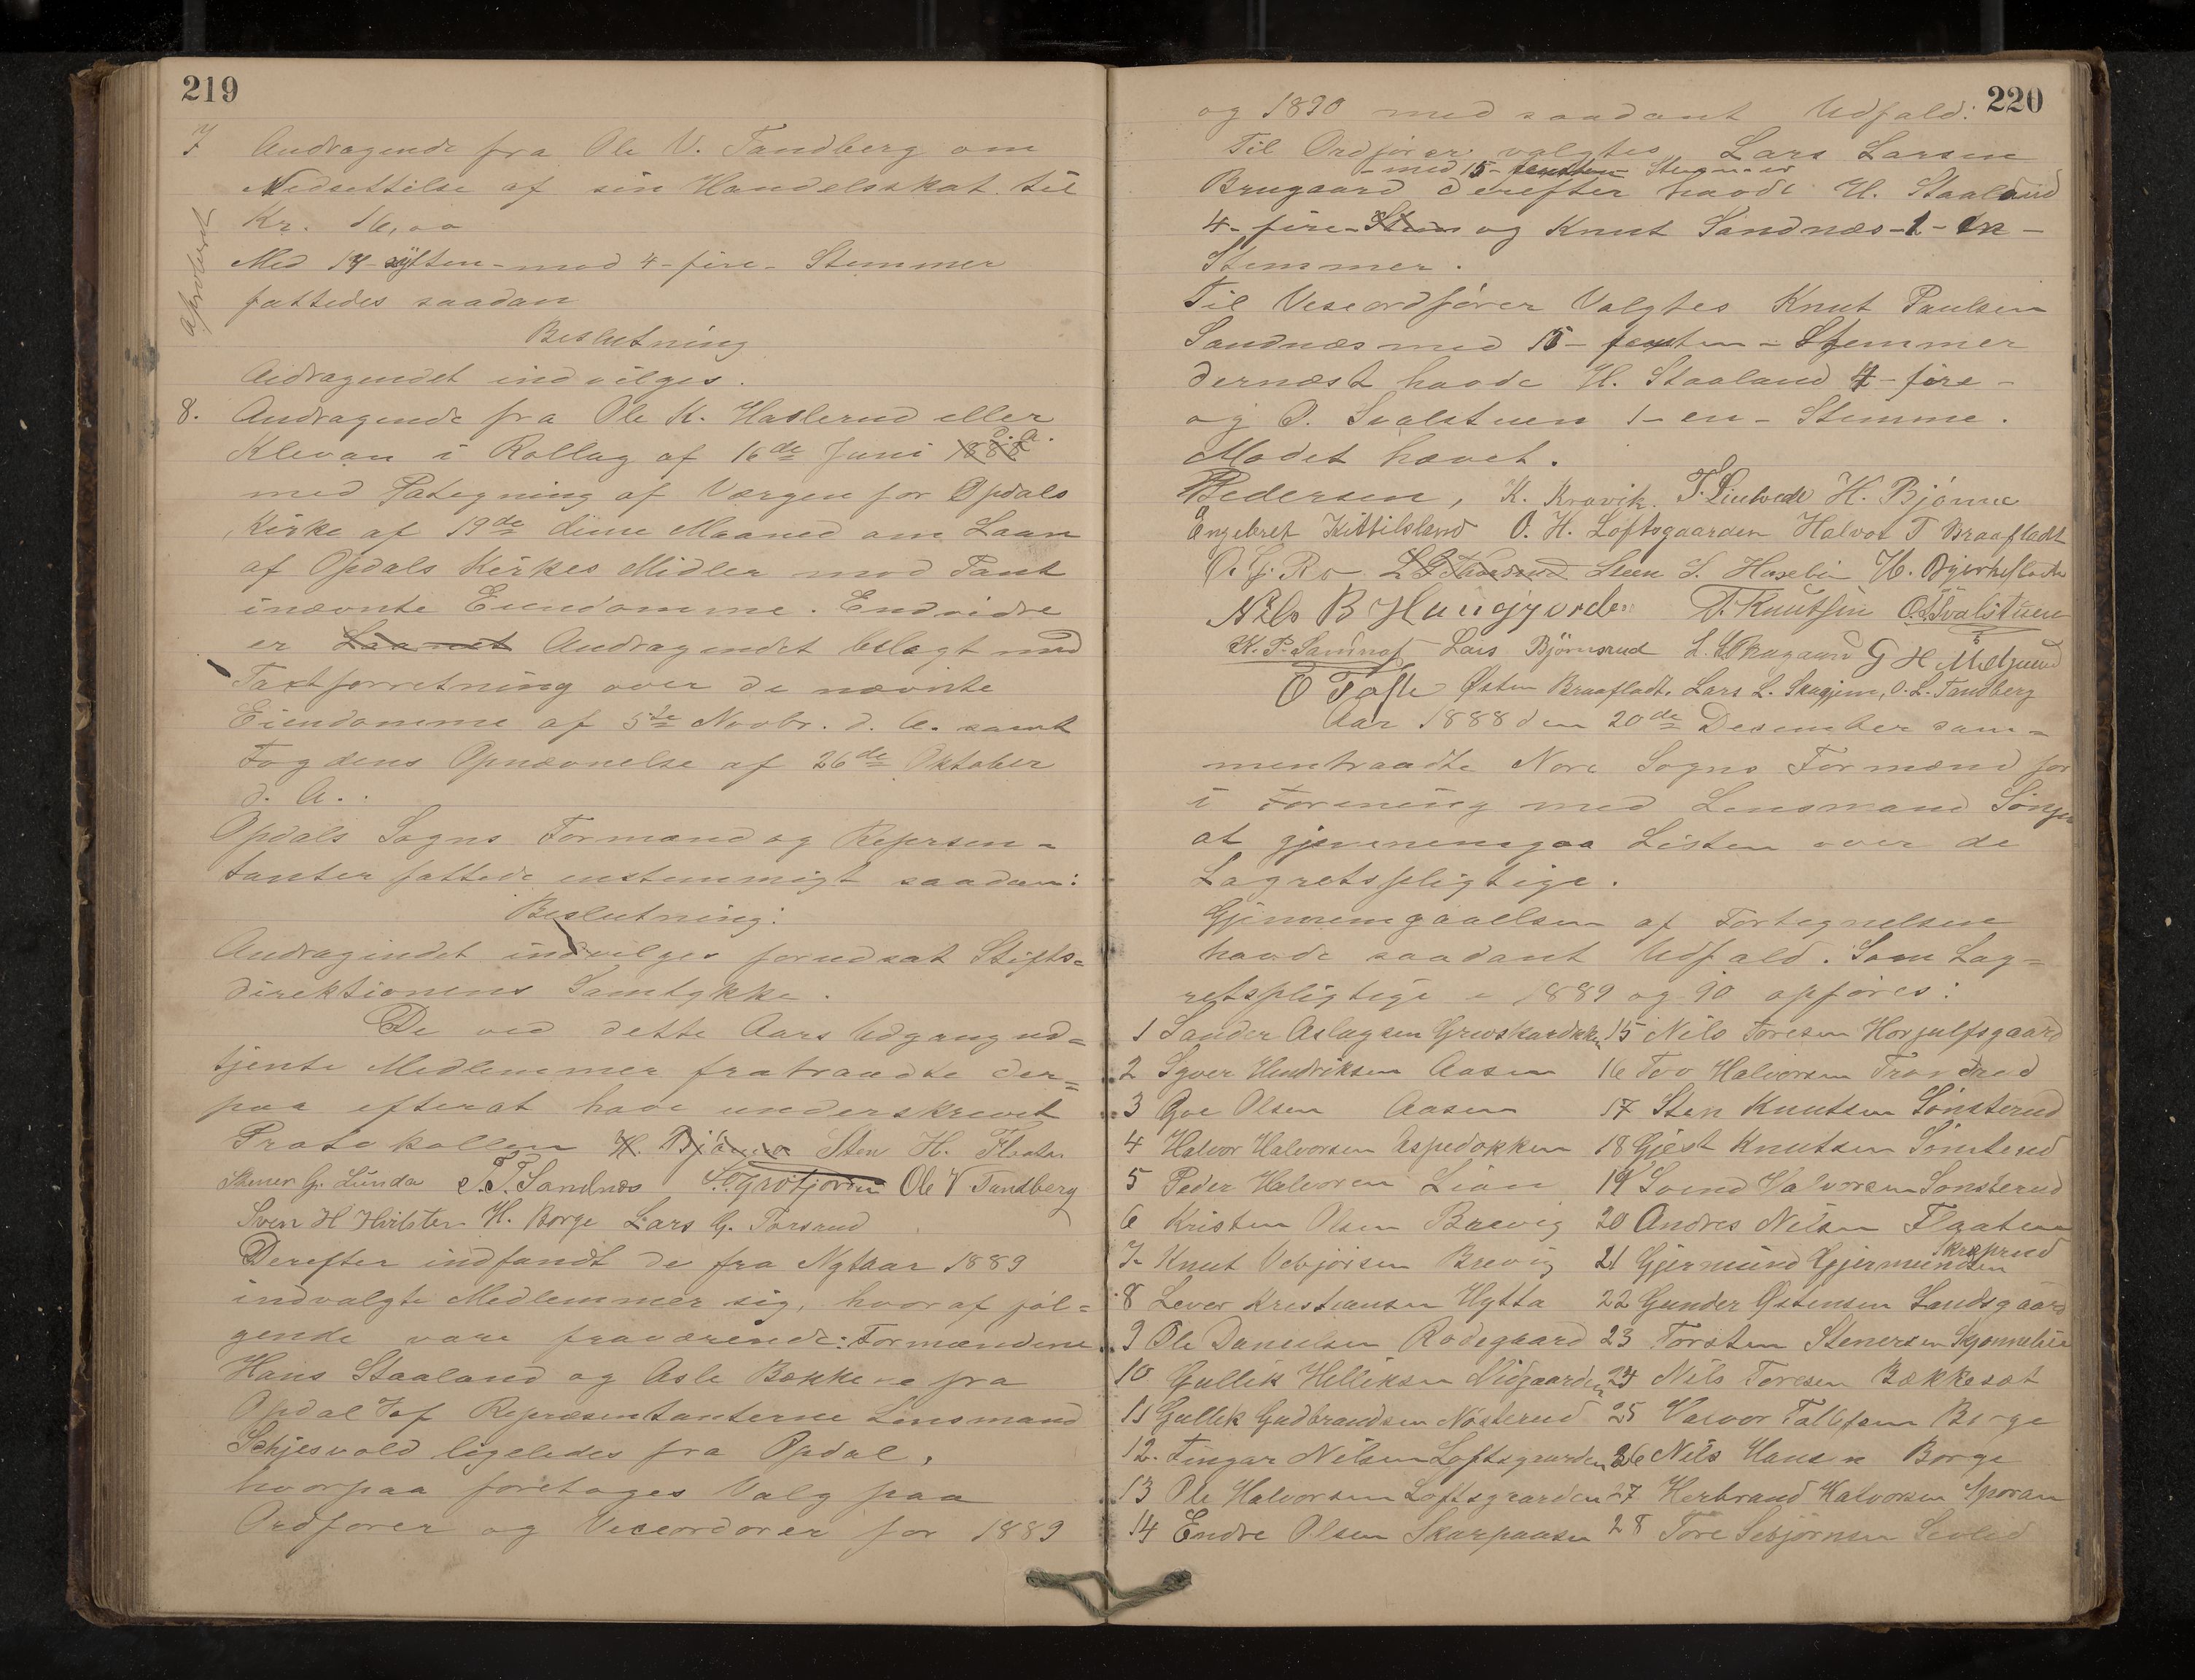 219
7 Andragende fra Ole V. Tandberg om
Nedsettelse af sin Handelsskat til
Kr. 16,00
Med 17-sytten-mod 4-fire- Stemmer
fattedes saadan
Beslutning
Andragendet indvilges.
8. Andragende fra Ole K. Haslerud eller
Klevan i Rollag af 16de Juni 1888 d. A.
med Pategning af Værgen for Opdals
Kirke af 19de dine Maaned om Laan
af Opdals Kirkes Midler mod Pant
inævnte Eiendomme. Endvidre
er Laanet Andragendet belagt med
Taxtforretning over de nævnte
Eiendomme af 5te Novbr. d. A. samt
Fogdens Opnævnelse af 26de Oktober
d. A.
Opdals Sogns Formænd og Reprsen-
tanter fattede enstemmigt saadan:
Beslutning:
Andragindet indvilges forudsat Stifts-
direktionens Samtykke.
De ved dette Aars Udgang ud-
tjente Medlemmer fratraadte der-
paa efterat have underskrevet
Protokollen H. Bjørnes Sten H. Flaata
Stener G. Lunda T.T. Sandnes Ole V Tandberg
Sven H Hvilsten H. Borge Lars G. Torsrud
Derefter indfandt de fra Nytaar 1889
indvalgte Medlemmer sig, hvoraf føl-
gende vare fraværende: Formændene
Hans Staaland og Asle Bekkene fra
Opdal Af Repræsentanterne Lensmand
Skjesvold ligeledes fra Opdal,
hvorpaa foretoges Valg paa
Ordfører og Viceordører for 1889
220
og 1890 med saadant Udfald:
Til Ordfører valgtes Lars Larsen
-med 15-femten Stemmer
Brugaard derefter havde H. Staaland
4-fire-Stem og Knut Sandnæs-1-en-
Stemmer.
Til Viseordfører Valgtes Knut Paulsen
Sandnæs med 15-femten-Stemmer
dernæst havde H. Staaland 4-fire-
og O. Svalstuen 1-en-Stemme.
Mødet hævet.
Pedersen, K. Kravik. T. Lintvedt H. Bjørnes
Engebret Kittilsland O. H. Loftsgaarden Halvor T Braafladt
O. G. Ro L G Thorsrud Steen S. Haselin H. Bjerkeflaata
Nils B Haugjorden T. Knutsen O. Svalstuen
K. P. Sandnæs Lars Bjørnsrud L. L. Brugaard G H
O Tofte Østen Braafladt. Lars L. Skagjem, O. L. Tandberg
Aar 1888 den 20de Desember sam-
mentraadte Nore Sogns Formænd for
i Forening med Lensmand Sønju
at gjennemgaa Listen over de
Lagretspligtige.
Gjennemgaaelsen af Fortegnelsen
havde saadant Udfald. Som Lag-
retspligtige i 1889 og 90 opføres:
1 Sander Aslagsen
2 Syver Hendriksen Aasen
3 Goe Olsen Aasen
4 Halvor Halvorsen Aspedokken
5 Peder Halvoren Lian
6 Kristen Olsen Brevig
7 Knut Vebjørsen Brevig
8 Lever Kristiansen Hytta
9 Ole Danielsen Rodegaard
10 Gullik Helliksen Nidgaarden
11 Gullik Gudbrandsen Nosterud
12. Fingar Nilsen Loftsgaarden
13 Ole Halvorsen Loftsgaarden
14 Endre Olsen Skarpaasen
15 Nils Toresen Horjulfsgaard
16 Tov Halvorsen Trondrud
17 Sten Knutsen Sønsterud
18 Gjest Knutsen Sønsterud
19 Svend Halvorsen Sønsterud
20 Andres Nilsen Flaaten
21 Gjermund Gjermundsen Skreprud
22 Gunder Østensen Landsgaard
23 Torsten Stenersen Skjønnelien
24 Nils Toresen Bækkesæt
25 Halvor Tollefsen Borge
26 Nils Hansen Borge
27 Herbrand Halvorsen Sporan
28 Tore Sebjørnsen Sevled